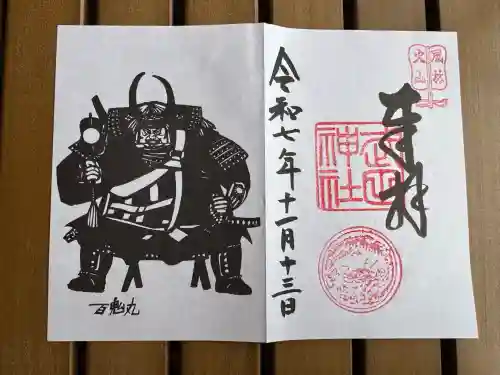 風林
火山
奉拝
武田
神社
令和七年十一月十三日
百鬼丸